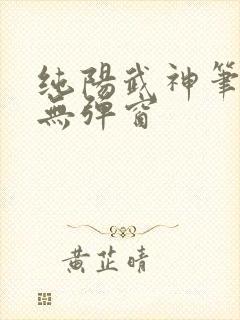 純陽武神筆
無彈窗
黃芷晴